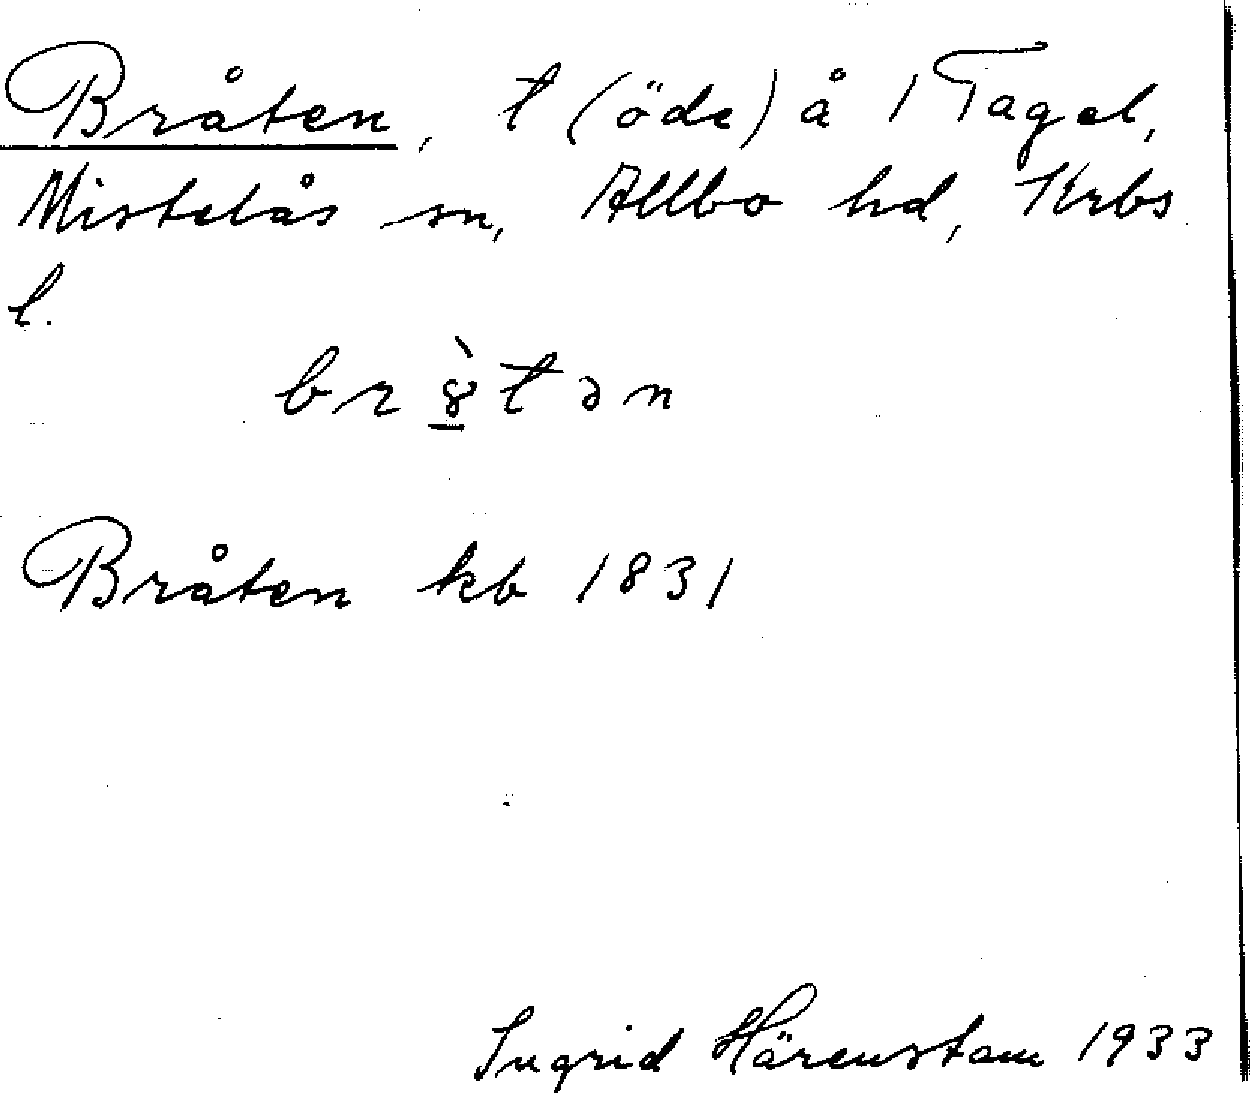 Bråten, t (öde) å 1 Tagel,
Mistelås sn, Allbo hd, Krbs
l.
br8̲̀tən
Bråten kb 1831
Ingrid Härenstam 1933